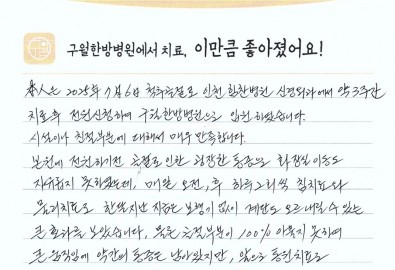 구월한방병원에서 치료, 이만큼 좋아졌어요!
本人은 2025年 7月 6日 척추골절로 인천 한찬병원 신경외과에서 약 3주간
치료후 전원신청하여 구월한방병원으로 입원 하였습니다.
시설이나 친절부분에 대해서 매우 만족합니다.
본원에 전원하기전 골절로 인한 굉장한 통증으로 화장실 이동도
자유롭지 못하였는데, 매일 오전, 후 하루 2회씩 침치료와
물리치료로 한달지난 지금은 보행기 없이 계단도 오르내릴수 있는
큰 효과를 보았습니다. 물론 골절부분이 100% 아물지 못하여
큰 움직임에 약간의 통증은 남아있지만, 앞으로 통원치료로